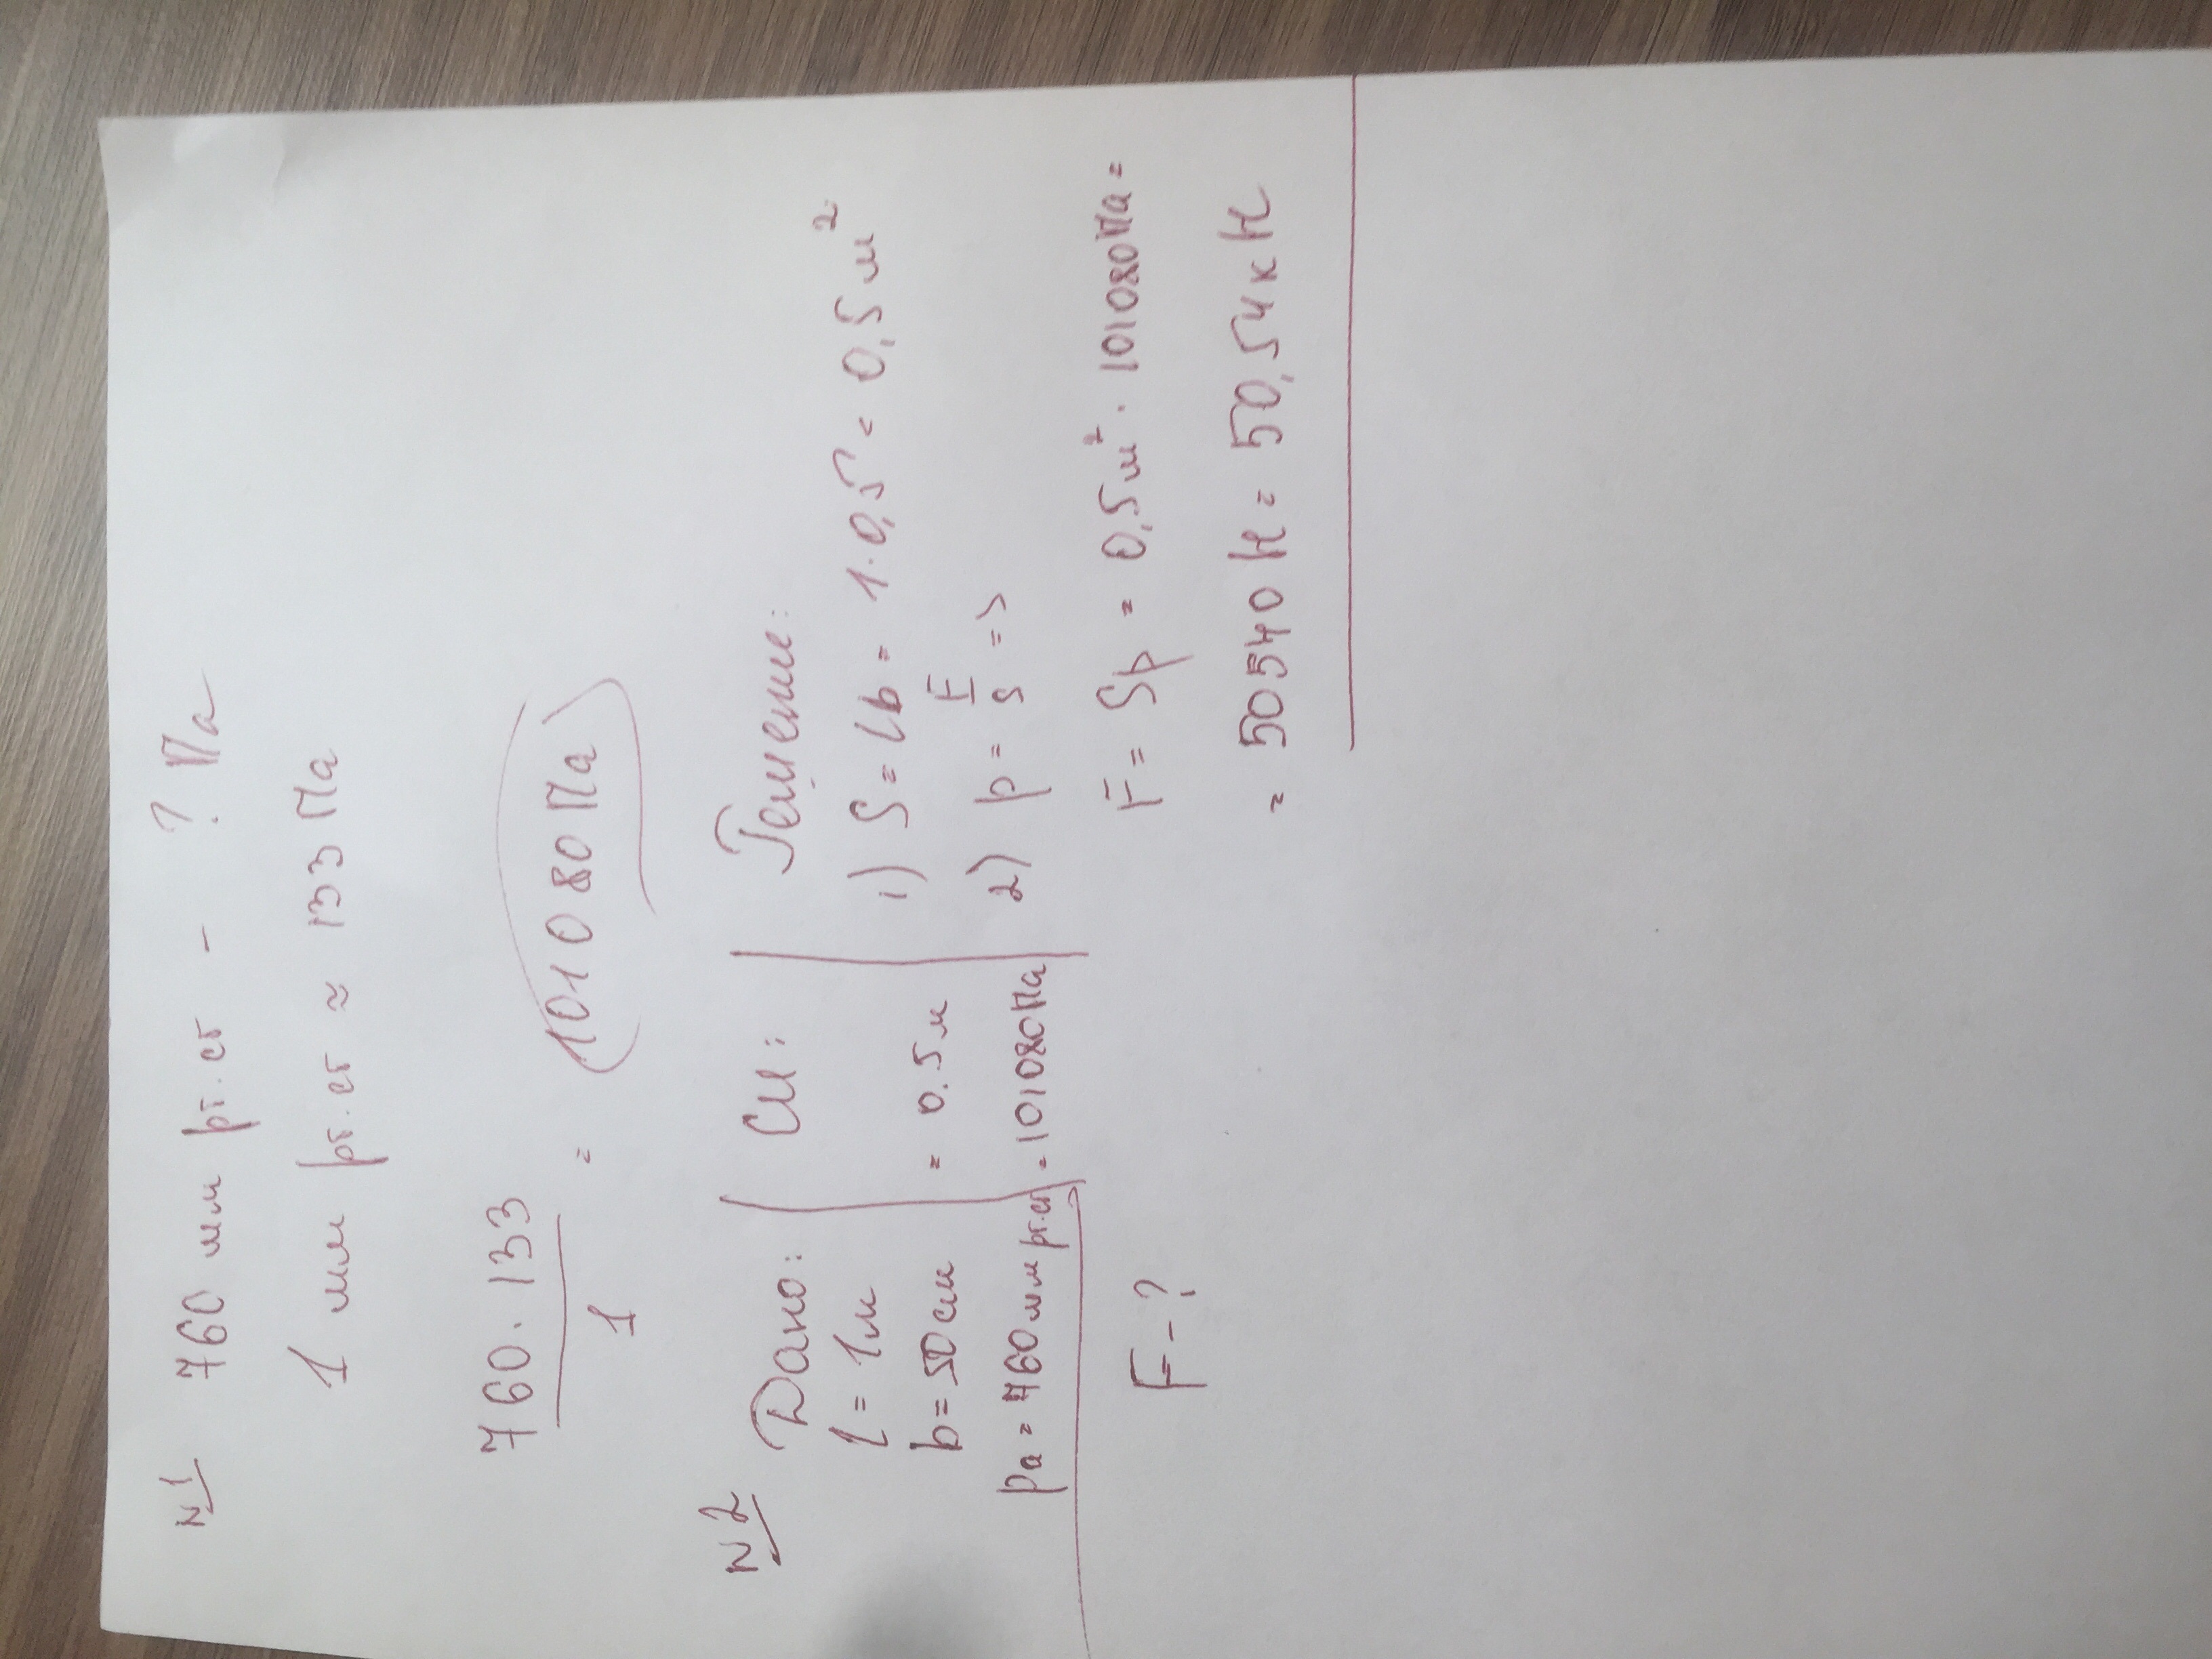 N1 760 мм рт.ст - ? Па
1 мм рт.ст ≈ 133 Па
760 · 133
1
= 101080 Па
N2 Дано: СИ: Решение:
l = 1м 1) S = lb = 1 · 0,5 = 0,5 м²
b = 50 см = 0.5 м 2) p = F/S =>
pa = 760 мм рт.ст = 101080 Па
F - ? F = Sp = 0,5 м² · 101080 Па =
= 50540 Н = 50,54 кН